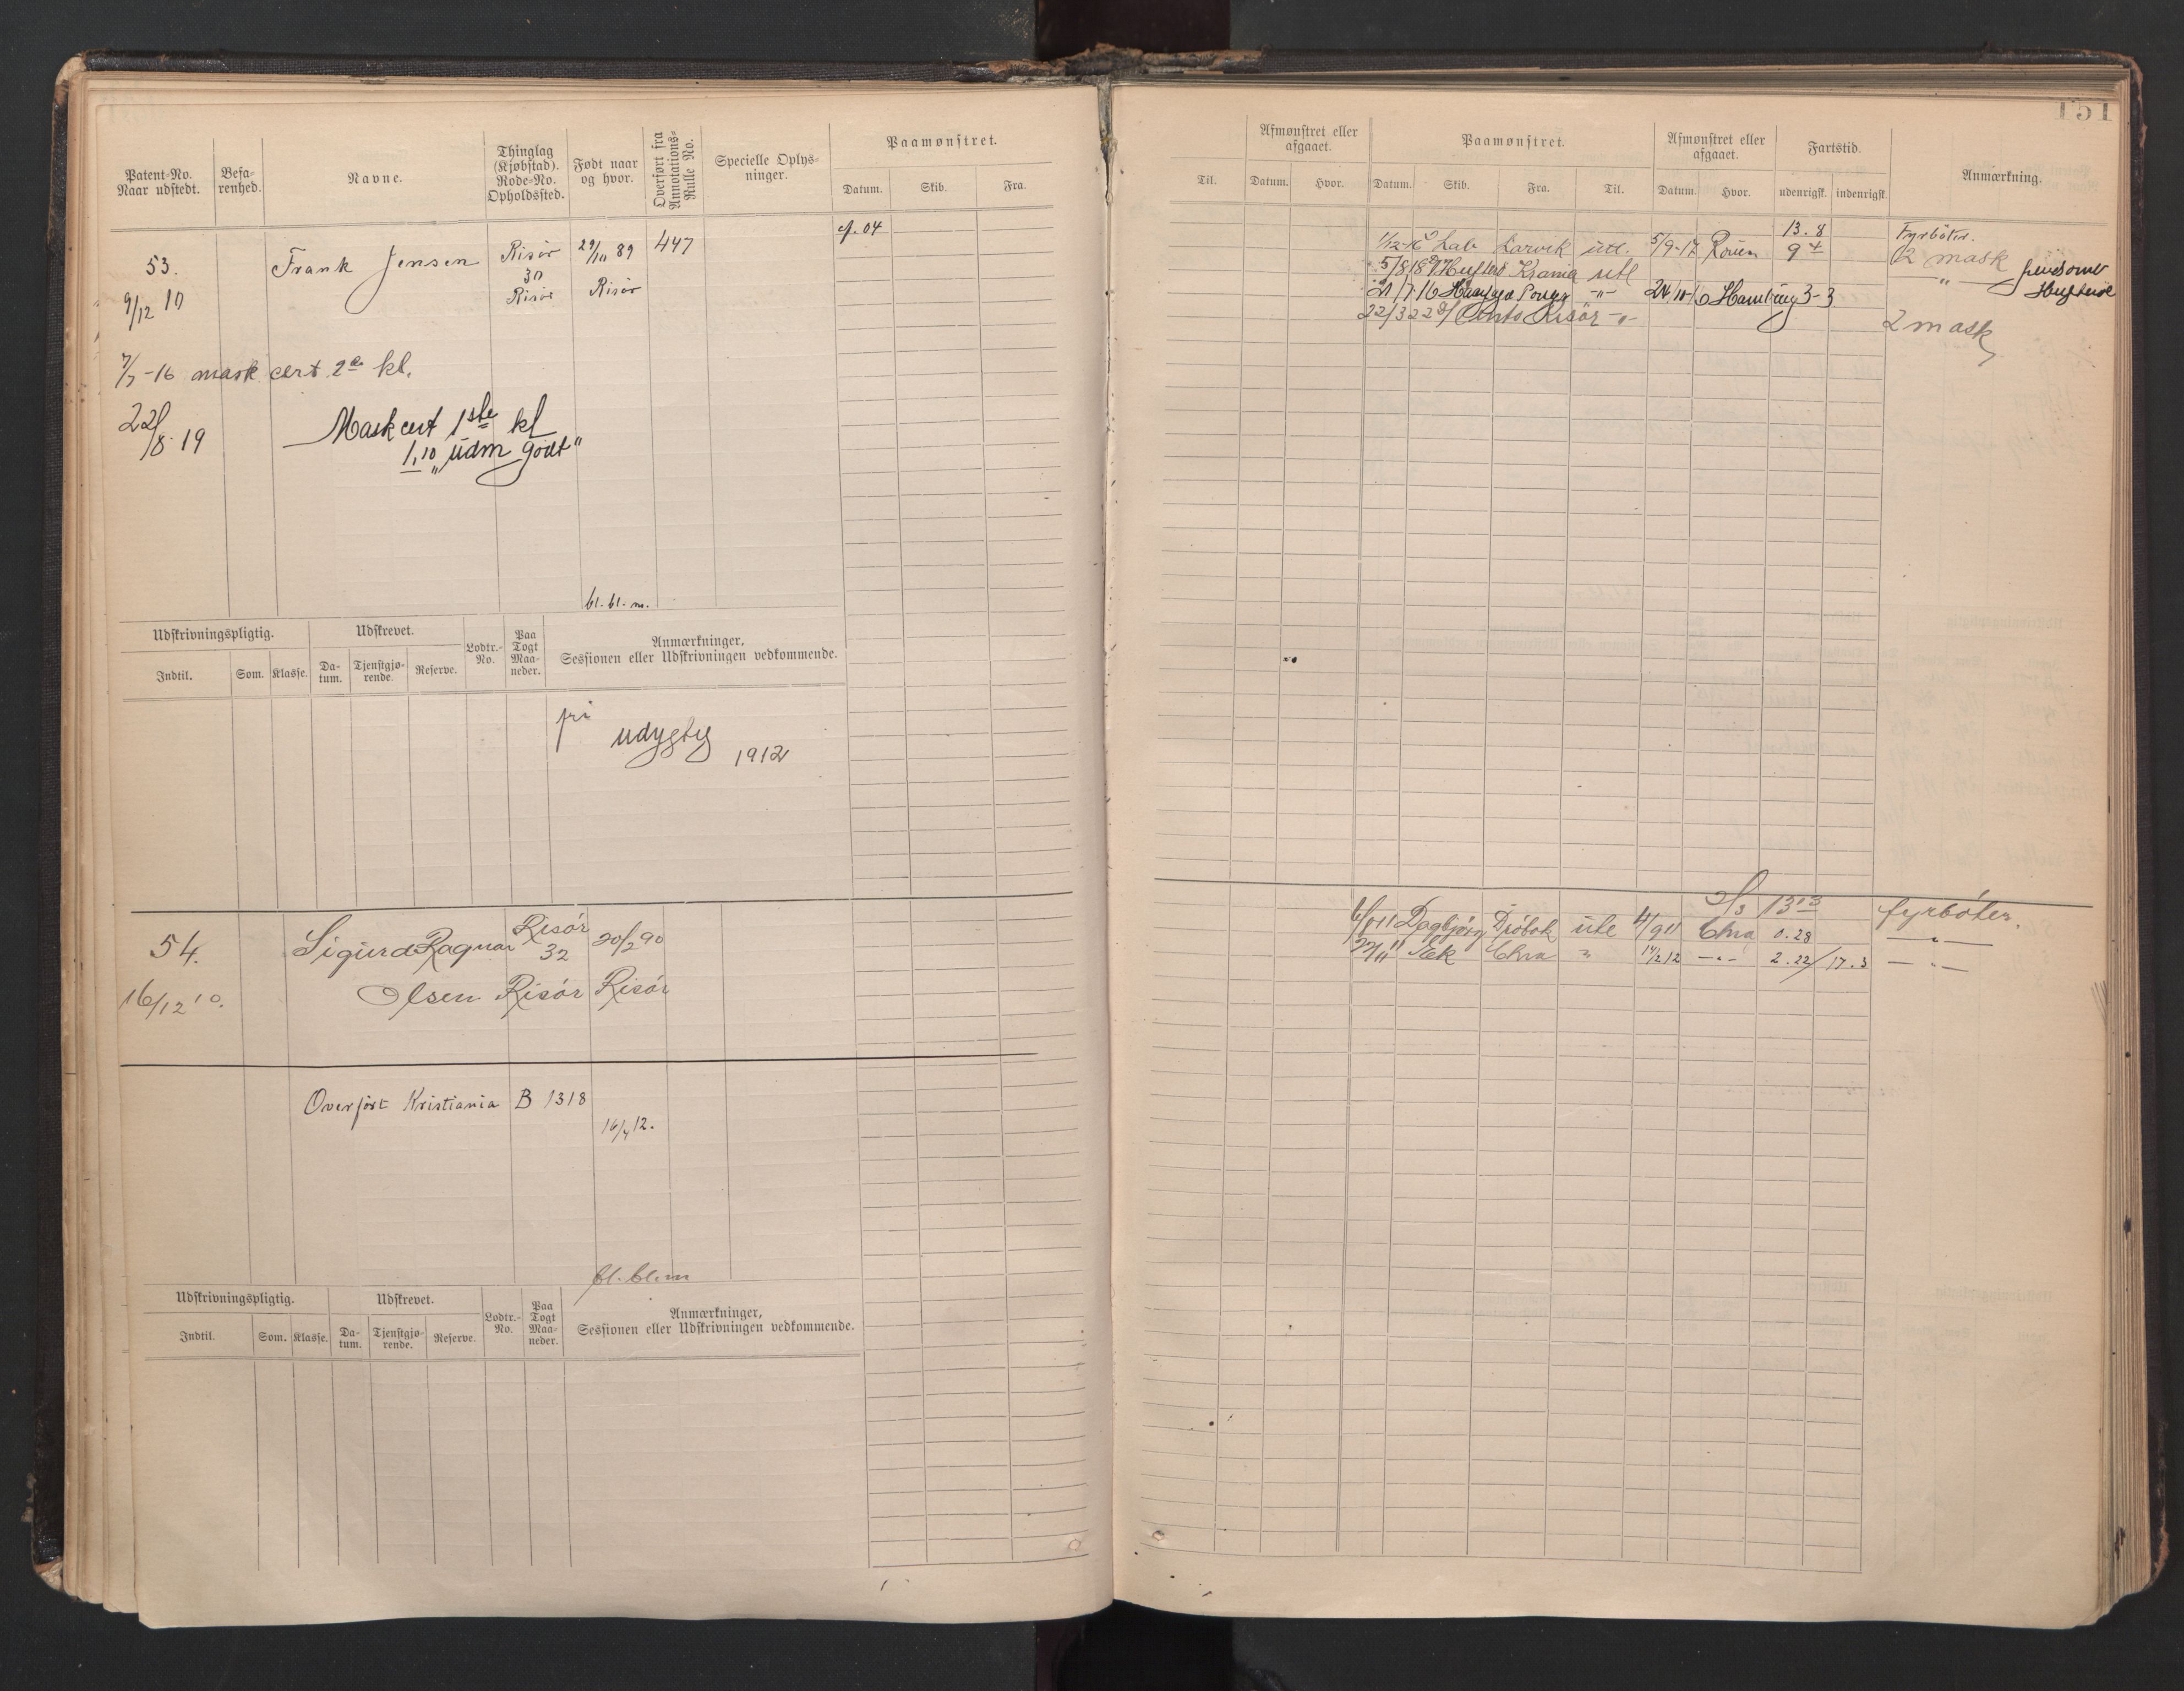 151
Patent-No. Naar udstedt.
Befarenhed.
Navne.
Thinglag (Kjøbstad). Rode-No. Opholdssted.
Født naar og hvor.
Overført fra Annotations-Rulle No.
Specielle Oplysninger.
Paamønstret.
Datum. Skib. Fra.
Til.
Afmønstret eller afgaaet.
Datum. Hvor.
Paamønstret.
Datum. Skib. Fra. Til.
Afmønstret eller afgaaet.
Datum. Hvor.
Fartstid.
udenrigsk. indenrigsk.
Anmærkning.
53. Frank Jensen Risør 29/10 89 447 cf. 04
30
9/12 10 Risør Risør
7/7-16 mask cert 2 kl.
22/8-19 Maskcert 1ste kl
1,10 "udm godt"
bl. bl. m.
13.8 Fyrbøter.
1/12-16 Lab Larvik utl. 5/9-17 Rouen 9 2 mask
5/8 18 Krania utl
21/7-16 -"- 24/10-16 Hamburg 3-3
22/3 22 Risør -"- 2 mask
Udskrivningspligtig. Udskrevet. Lodtr.-No. Paa Togt Maaneder. Anmærkninger, Sessionen eller Udskrivningen vedkommende.
Indtil. Som. Klasse. Datum. Tjenstgjørende. Reserve.
fri
udygtig
1912
54. Sigurd Ragnar Risør 20/2 90
32
16/12 10. Olsen Risør Risør
Fyrbøter.
Dagbjørg Drøbak utl 4/9 11 Chra 0.28 -"-
Ek Chra " 14/2 12 -"- 2.22/17.3 -"-
Overført Kristiania B 1318
16/4 12.
bl. bl. m
Udskrivningspligtig. Udskrevet. Lodtr.-No. Paa Togt Maaneder. Anmærkninger, Sessionen eller Udskrivningen vedkommende.
Indtil. Som. Klasse. Datum. Tjenstgjørende. Reserve.